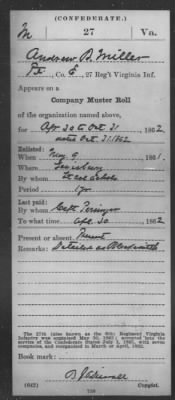 (CONFEDERATE.)
M 27 Va.
Andrew B. Miller
Pt, Co. G, 27 Reg't Virginia Inf.
Appears on a
Company Muster Roll
of the organization named above,
for Apr 30 to Oct 31 1862
dated Oct 31 1862
Enlisted:
When May 9 1861
Where Lewisburg
By whom Lt Col Echols
Period 1 yr
Last paid:
By whom Capt
To what time Apr. 30 1862
Present or absent Present
Remarks: Detailed as Blacksmith
The 27th (also known as the 6th) Regiment Virginia
Infantry was organized May 30, 1861; accepted into the
service of the Confederate States July 1, 1861, with seven
companies, and reorganized in March or April, 1862.
Book mark:
(642) Copyist.